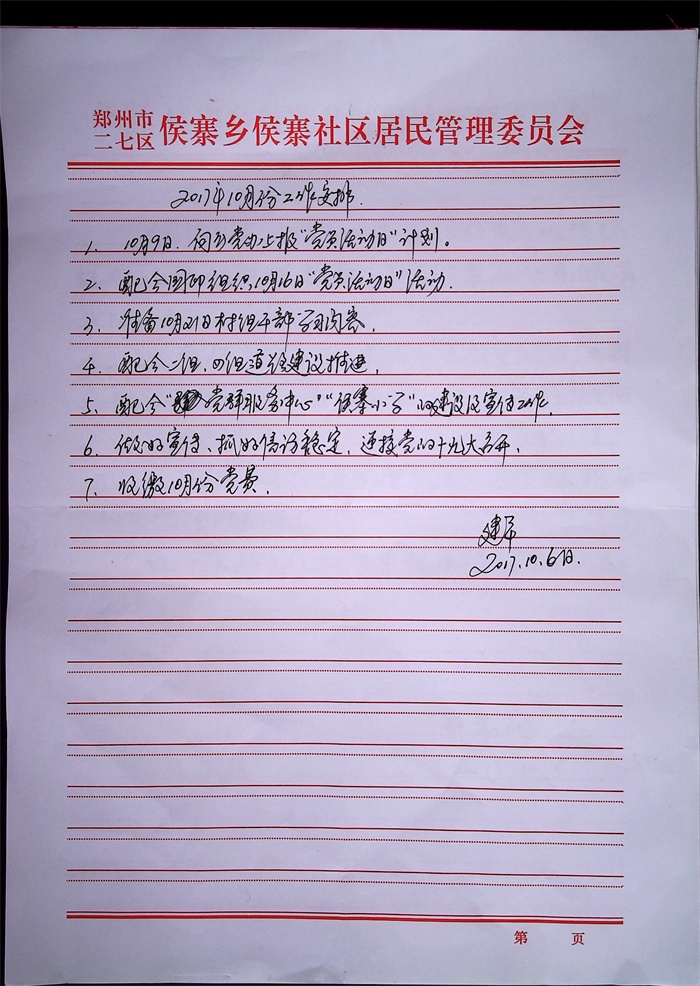 郑州市
二七区 侯寨乡侯寨社区居民管理委员会
2017年10月份工作安排.
1、10月9日.向乡党办上报“党员活动日”计划。
2、配合园邱组织10月16日“党员活动日”活动.
3、准备10月21日村组干部学习内容.
4、配合二组、四组道路建设推进.
5、配合“党群服务中心”“侯寨小学”的建设及宣传工作.
6、做好宣传、抓好信访稳定,迎接党的十九大召开.
7、收缴10月份党费.
建军
2017.10.6日.
第 页